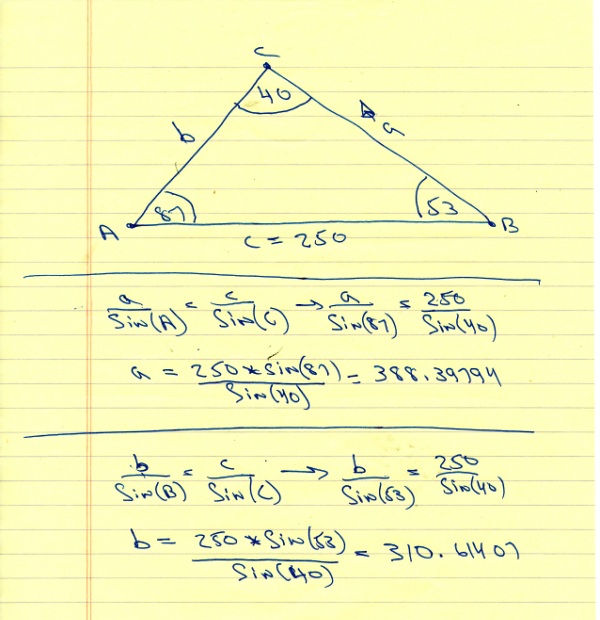 C
40
b
a
A
87
53
B
c = 250
a/Sin(A) = c/Sin(C) → a/Sin(87) = 250/Sin(40)
a = 250*Sin(87)/Sin(40) = 388.39794
b/Sin(B) = c/Sin(C) → b/Sin(53) = 250/Sin(40)
b = 250*Sin(53)/Sin(40) = 310.61407